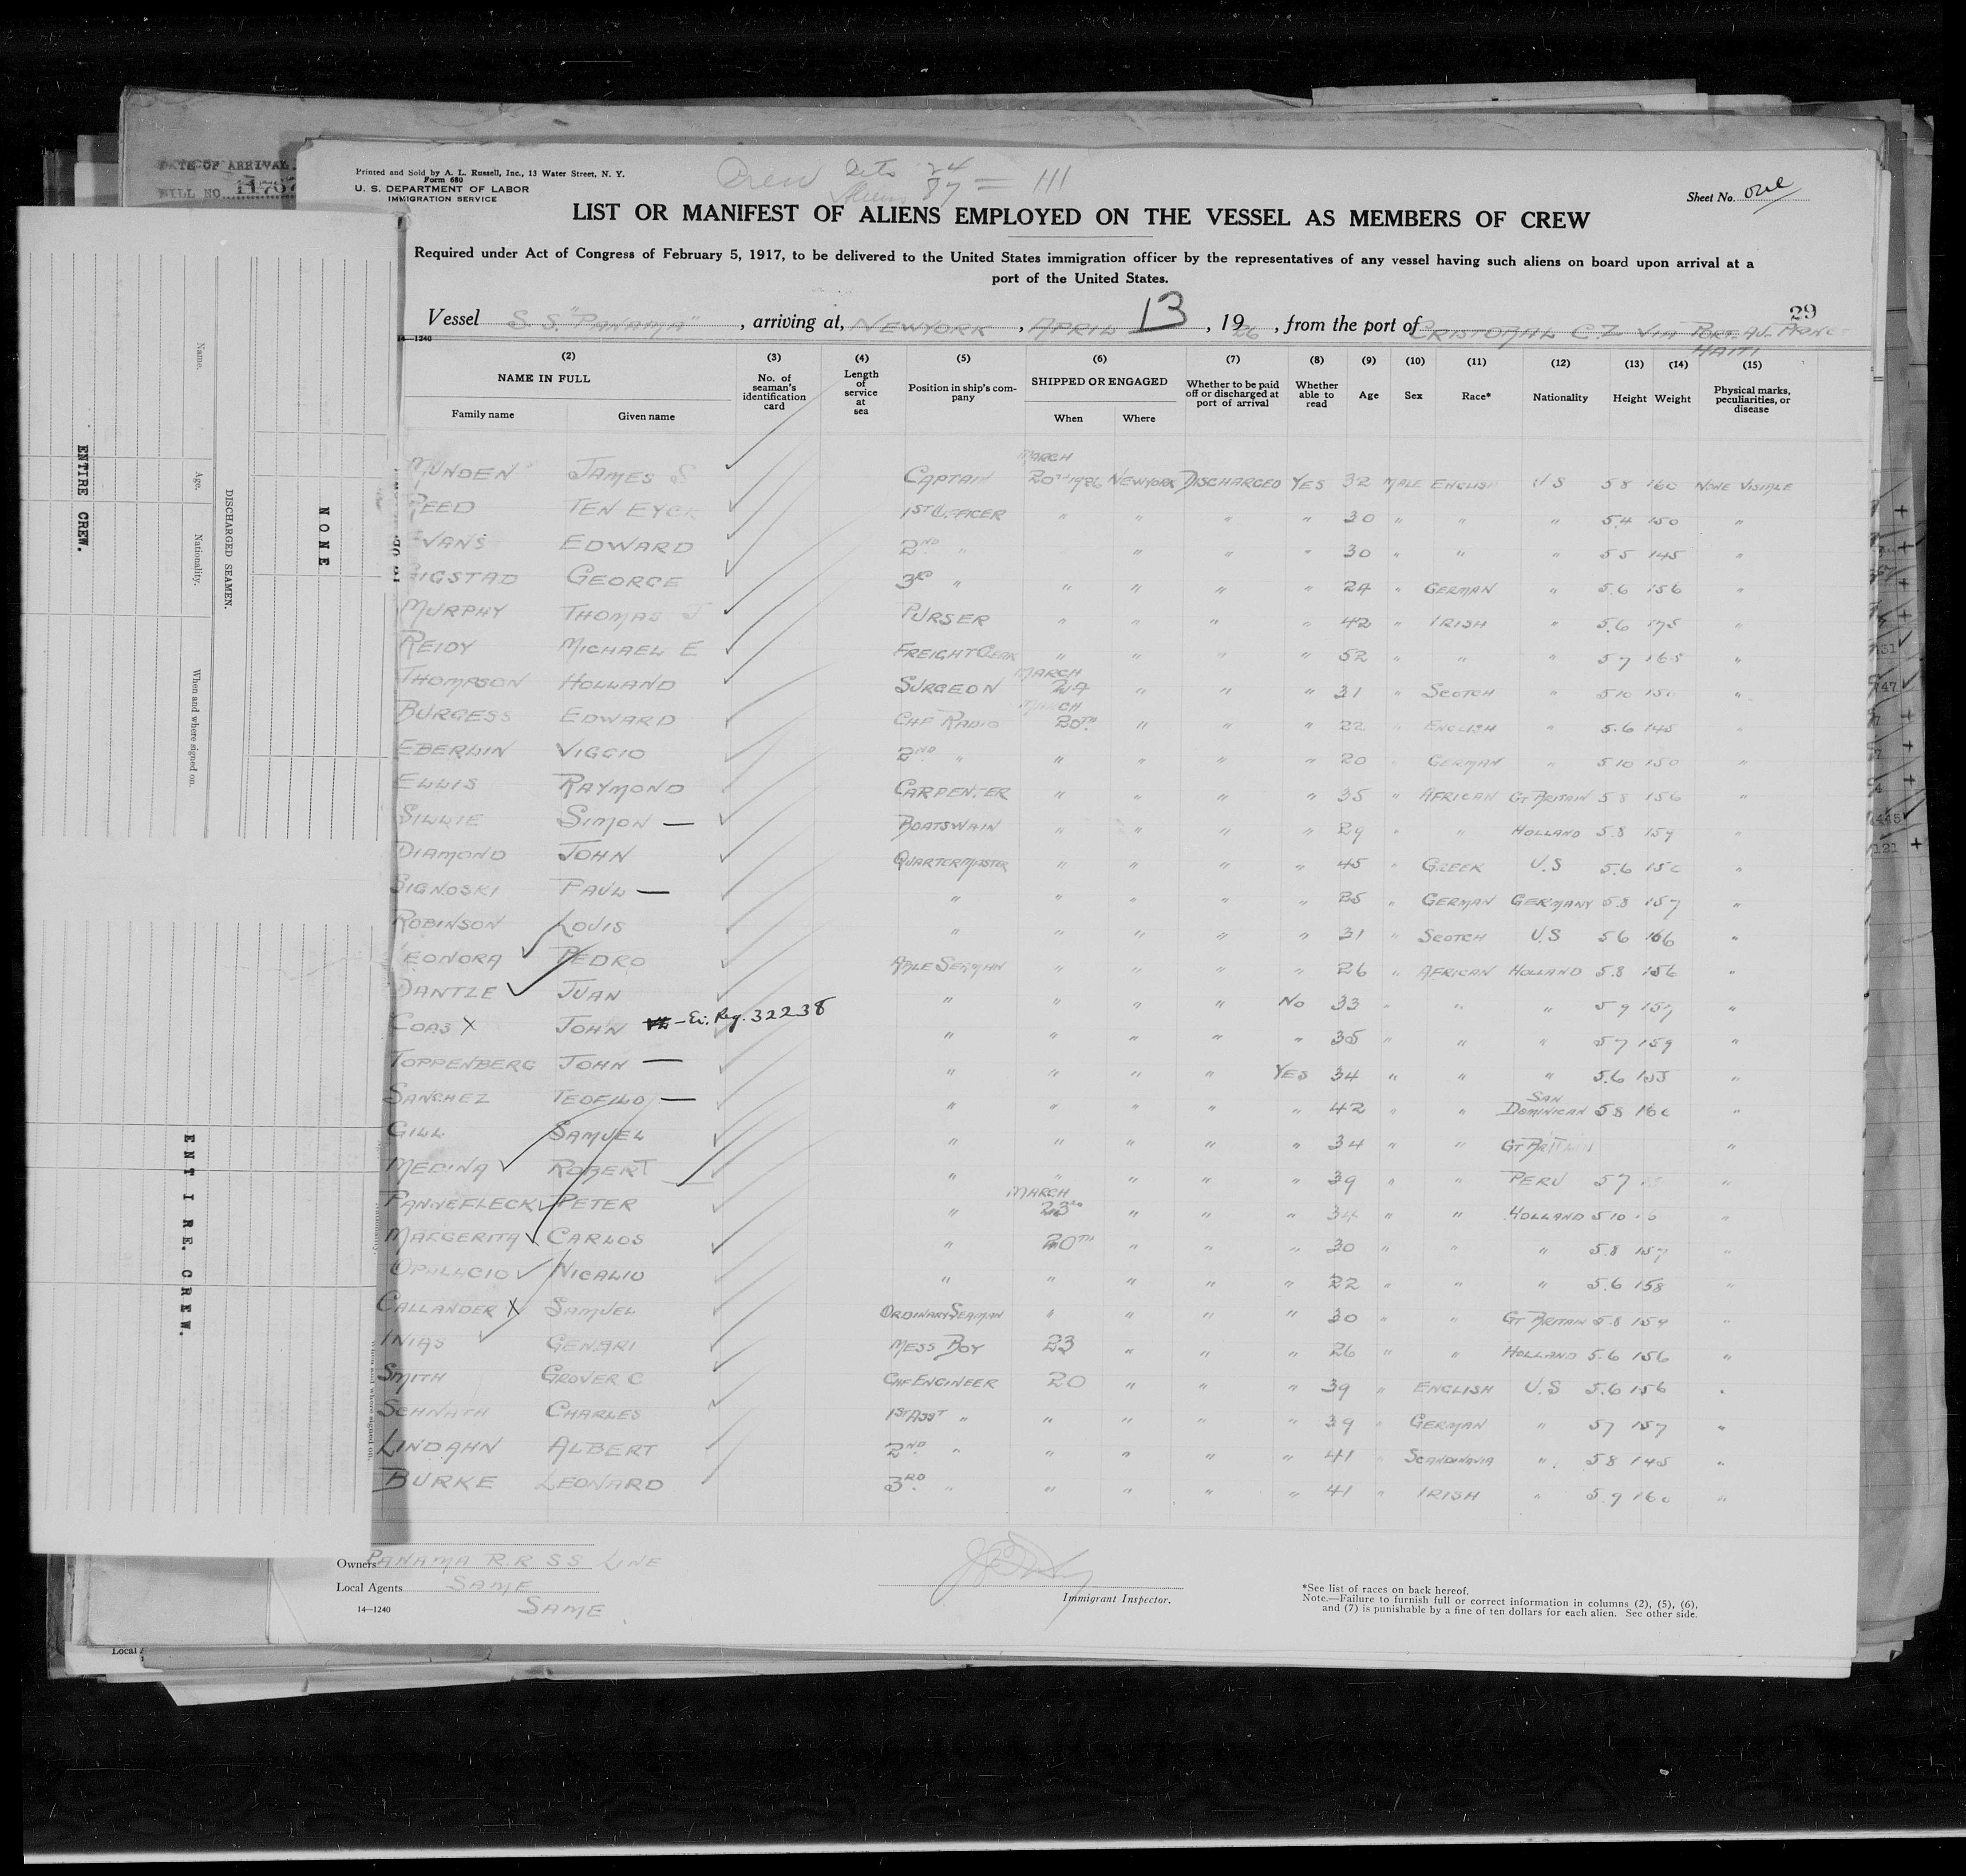 DATE OF ARRIVAL
BILL NO. 11767
Printed and Sold by A. L. Russell, Inc., 13 Water Street, N. Y.
Form 680
U. S. DEPARTMENT OF LABOR
IMMIGRATION SERVICE
Crew 24
Aliens 87 = 111
Sheet No. one
LIST OR MANIFEST OF ALIENS EMPLOYED ON THE VESSEL AS MEMBERS OF CREW
Required under Act of Congress of February 5, 1917, to be delivered to the United States immigration officer by the representatives of any vessel having such aliens on board upon arrival at a
port of the United States.
29
Vessel S.S. "PANAMA", arriving at, NEWYORK, APRIL 13, 1926, from the port of CRISTOBAL C.Z VIA PORT-AU-
HAITI
14-1240
(2) (3) (4) (5) (6) (7) (8) (9) (10) (11) (12) (13) (14) (15)
NAME IN FULL
Family name Given name
No. of seaman's identification card
Length of service at sea
Position in ship's company
SHIPPED OR ENGAGED
When Where
Whether to be paid off or discharged at port of arrival
Whether able to read
Age Sex Race* Nationality Height Weight
Physical marks, peculiarities, or disease
MUNDEN JAMES S CAPTAIN MARCH 20TH 1926 NEWYORK DISCHARGED YES 32 MALE ENGLISH U S 5 8 160 NONE VISIBLE
REED TEN EYCK 1ST OFFICER " " " " 30 " " " 5.4 150 "
EVANS EDWARD 2ND " " " " 30 " " " 5 5 145 "
SIGSTAD GEORGE 3RD " " " " " 24 " GERMAN " 5.6 156 "
MURPHY THOMAS J PURSER " " " " 42 " IRISH " 5.6 175 "
REIDY MICHAEL E FREIGHT CLERK " " " " 52 " " " 5 7 165 "
THOMPSON HOLLAND SURGEON MARCH 24 " " " 31 " SCOTCH " 5 10 150 "
BURGESS EDWARD CHF RADIO MARCH 20TH " " " 22 " ENGLISH " 5.6 145 "
EBERLIN VIGGIO 2ND " " " " " 20 " GERMAN " 5 10 150 "
ELLIS RAYMOND CARPENTER " " " " 35 " AFRICAN GT BRITAIN 5 8 156 "
SILLIE SIMON — BOATSWAIN " " " " 29 " " HOLLAND 5.8 159 "
DIAMOND JOHN QUARTERMASTER " " " " 45 " GREEK U.S 5.6 150 "
SIGNOSKI PAUL — " " " " " 25 " GERMAN GERMANY 5.8 157 "
ROBINSON LOUIS " " " " " 31 " SCOTCH U.S 5 6 166 "
LEONORA PEDRO ABLE SEAMAN " " " " 26 " AFRICAN HOLLAND 5.8 156 "
DANTZE JUAN " " " " NO 33 " " " 5 9 157 "
COAS X JOHN — Ei. Reg. 32238 " " " " " 35 " " " 5 7 159 "
TOPPENBERG JOHN — " " " " YES 34 " " " 5.6 155 "
SANCHEZ TEOFILO — " " " " " 42 " " SAN DOMINICAN 5 8 160 "
GILL SAMUEL " " " " " 34 " " GT BRITAIN "
MEDINA ROBERT " " " " " 39 " " PERU 5 7 "
PANNEFLECK PETER " MARCH 23RD " " " 34 " " HOLLAND 5 10 "
MARGERITA CARLOS " 20TH " " " 30 " " " 5.8 157 "
OPULACIO NICALIO " " " " " 22 " " " 5.6 158 "
CALLANDER X SAMUEL ORDINARY SEAMAN " " " " 30 " " GT BRITAIN 5.8 159 "
INIAS GENARI MESS BOY 23 " " " 26 " " HOLLAND 5.6 156 "
SMITH GROVER C CHF ENGINEER 20 " " " 39 " ENGLISH U.S 5.6 156 "
SCHNATH CHARLES 1ST ASST " " " " " 39 " GERMAN " 5 7 157 "
LINDAHN ALBERT 2ND " " " " " 41 " SCANDINAVIA " 5 8 145 "
BURKE LEONARD 3RD " " " " " 41 " IRISH " 5.9 160 "
Owners PANAMA R.R SS LINE
Local Agents SAME
SAME
14—1240
Immigrant Inspector.
*See list of races on back hereof.
Note.—Failure to furnish full or correct information in columns (2), (5), (6),
and (7) is punishable by a fine of ten dollars for each alien. See other side.
ENTIRE CREW.
Name.
Age.
Nationality.
When and where signed on.
DISCHARGED SEAMEN.
NONE
ENTIRE. CREW.
When and where signed on.
Local